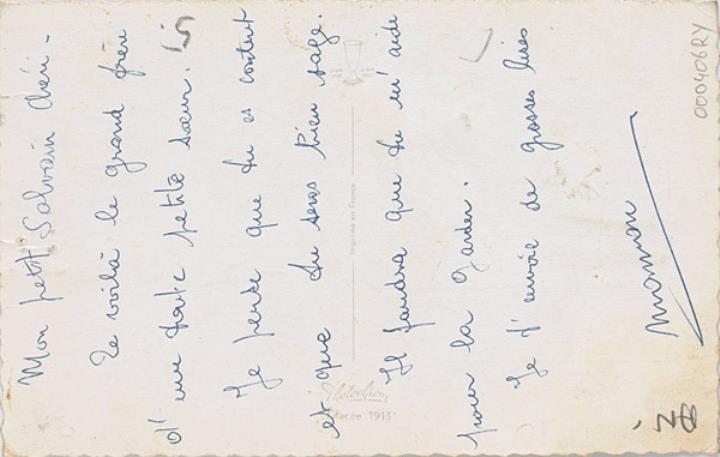 Mon petit Salvain chéri -
Te voilà le grand frère
d'une toute petite sœur.
Je pense que tu es content
et que tu seras bien sage.
Il faudra que tu m'aide
pour la garder.
Je t'envoie de grosses bises
maman
0004068Y
Imprimé en France
Macée 1913